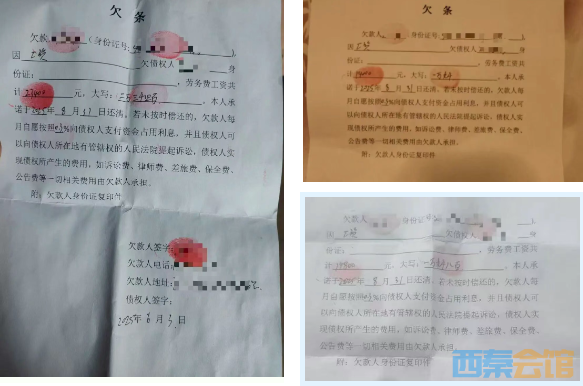 欠 条
欠款人 (身份证号: ),
因 欠债权人 身
份证: , 劳务费工资共
计 元, 大写: , 本人承
诺于2025年8月31日还清, 若未按时偿还的, 欠款人每
月自愿按照 %向债权人支付资金占用利息, 并且债权人可
以向债权人所在地有管辖权的人民法院提起诉讼, 债权人实
现债权所产生的费用, 如诉讼费、律师费、差旅费、保全费、
公告费等一切相关费用由欠款人承担。
附: 欠款人身份证复印件
欠款人签字:
欠款人电话:
欠款人地址:
债权人签字:
2025年8月 日
欠 条
欠款人 (身份证号: ),
因 欠债权人
份证: , 劳务费工资共
计 元, 大写: , 本人承
诺于2025年8月31日还清, 若未按时偿还的, 欠款人每
月自愿按照 %向债权人支付资金占用利息, 并且债权人可
以向债权人所在地有管辖权的人民法院提起诉讼, 债权人实
现债权所产生的费用, 如诉讼费、律师费、差旅费、保全费、
公告费等一切相关费用由欠款人承担。
附: 欠款人身份证复印件
欠款人 身份证号 ),
因 欠债权人 身
份证: , 劳务费工资共
计 元, 大写: , 本人承
诺于2025年8月31日还清, 若未按时偿还的, 欠款人每
月自愿按照 %向债权人支付资金占用利息, 并且债权人可
以向债权人所在地有管辖权的人民法院提起诉讼, 债权人实
现债权所产生的费用, 如诉讼费、律师费、差旅费、保全费、
公告费等一切相关费用由欠款人承担。
附: 欠款人身份证复印件
西秦会馆